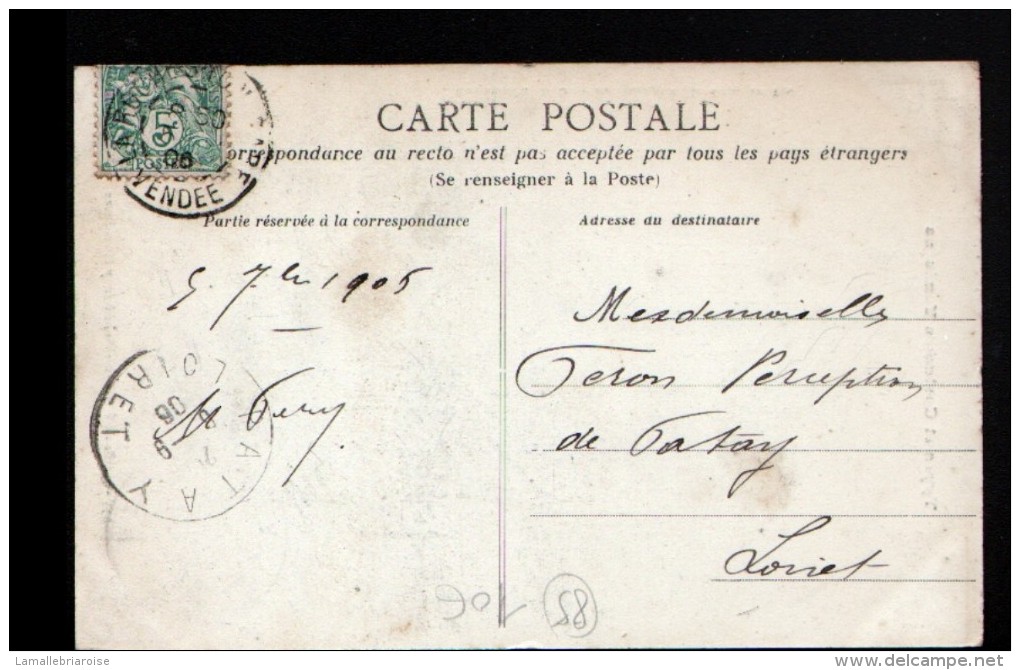 CARTE POSTALE
orrespondance au recto n'est pas acceptée par tous les pays étrangers
(Se renseigner à la Poste)
5
VENDEE
Partie réservée à la correspondance
Adresse du destinataire
5. 7bre 1905
Mesdemoiselles
Feron Perception
de Patay
Loiret
PATAY
LOIRET
06
10€
85
Lamallebriaroise
delcampe.net